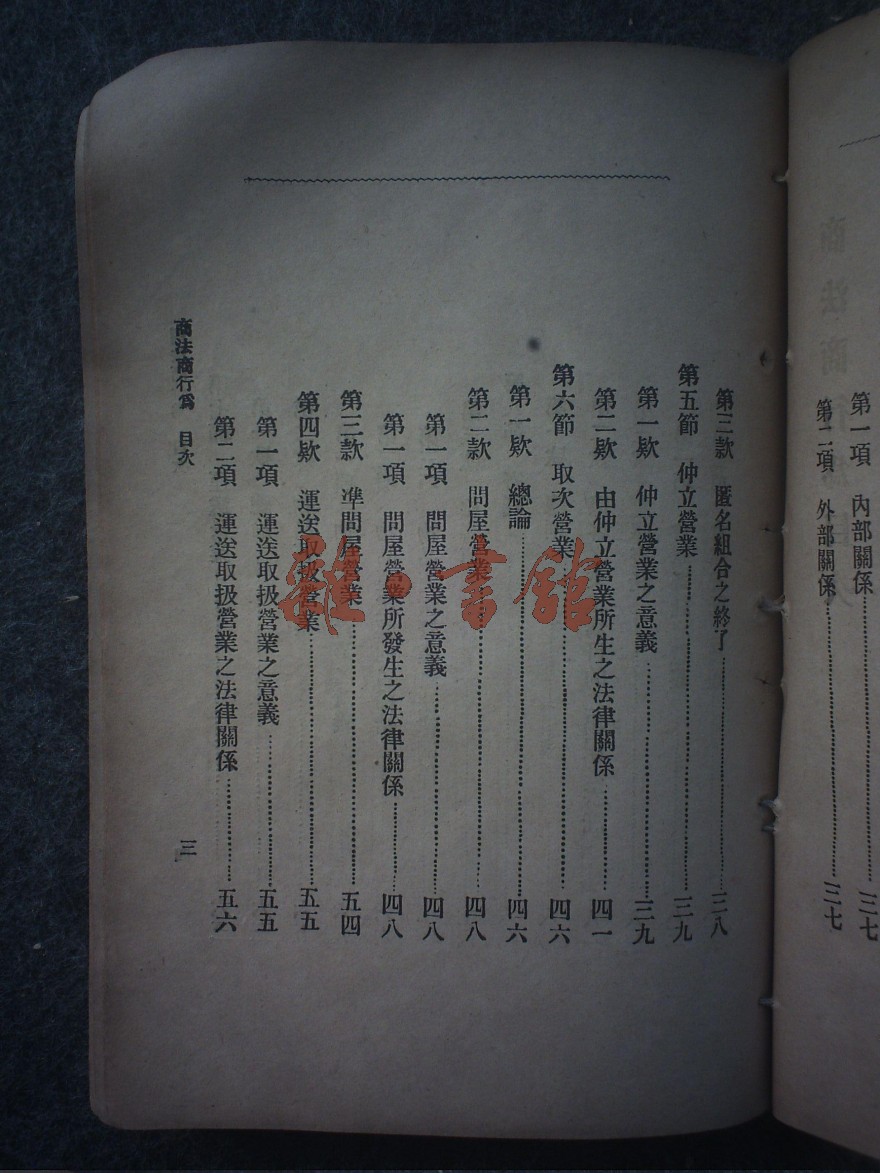 第一項　內部關係……三七
第二項　外部關係……三七
第三款　匿名組合之終了……三八
第五節　仲立營業……三九
第一款　仲立營業之意義……三九
第二款　由仲立營業所生之法律關係……四一
第六節　取次營業……四六
第一款　總論……四六
第二款　問屋營業……四八
第一項　問屋營業之意義……四八
第一項　問屋營業所發生之法律關係……四八
第三款　準問屋營業……五四
第四款　運送取扱營業……五五
第一項　運送取扱營業之意義……五五
第二項　運送取扱營業之法律關係……五六
商法商行為　目次　三
雜·書館